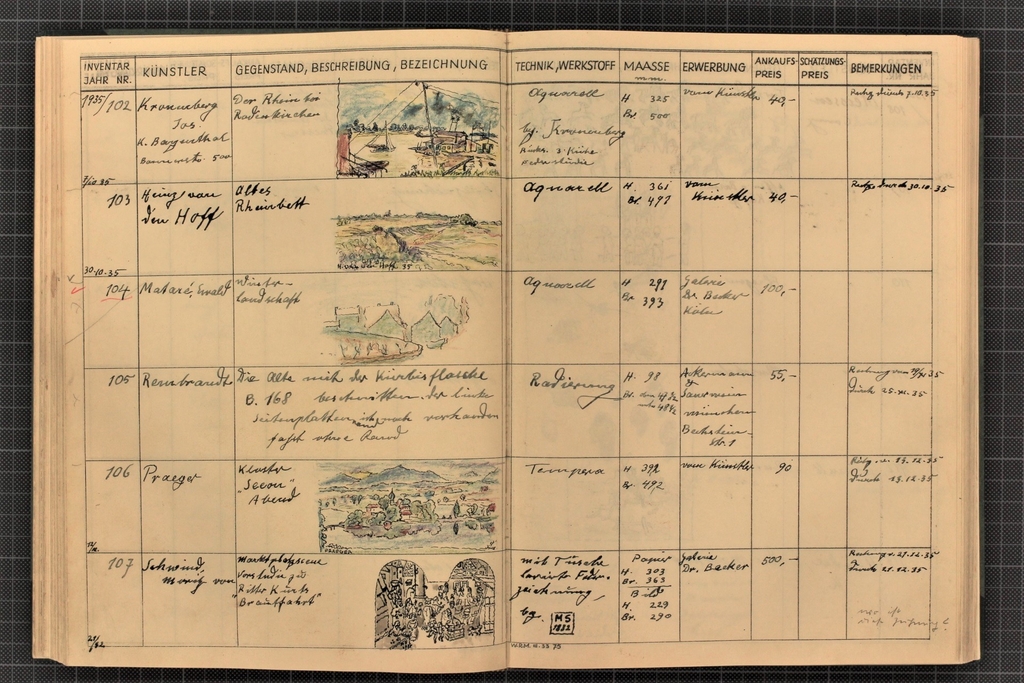 INVENTAR
JAHR NR.
KÜNSTLER
GEGENSTAND, BESCHREIBUNG, BEZEICHNUNG
TECHNIK, WERKSTOFF
MAASSE
m.m.
ERWERBUNG
ANKAUFS-
PREIS
SCHÄTZUNGS-
PREIS
BEMERKUNGEN
1935/102
Kronenberg
Jos.
500
Der Rhein bei
Rodenkirchen
Aquarell
bz. Kronenberg
H 325
Br. 500
vom Künstler
40,-
7.10.35
7/10 35
103
Heinz van
den Hoff
Altes
Rheinbett
H. v. den Hoff 35
Aquarell
H. 361
Br. 497
vom
Künstler
40,-
durch 30.10.35
30.10.35
104
Mataré, Ewald
Winter-
landschaft
Aquarell
H 291
Br 393
Galerie
Dr. Becker
Köln
100,-
105
Rembrandt
Die Alte mit der Kürbisflasche
B. 168 beschnitten der linke
noch vorhanden
fast ohne Rand
Radierung
H. 98
Ackermann
&
Sauerwein
München
55,-
durch 25.XI.35
106
Praeger
Kloster
"Seeon"
Abend
PRAEGER
Tempera
H 392
Br. 492
vom Künstler
90
13.12.35
durch 13.12.35
107
Schwind,
Moritz von
Marktplatzscene
Vorstudie zu
Ritter Kurts
"Brautfahrt"
mit Tusche
lavierte Feder-
zeichnung,
bz. MS
1832
Papier
H. 303
Br. 363
Bild
H. 229
Br. 290
Galerie
Dr. Becker
500,-
21.12.35
durch 21.12.35
W.R.M. H. 33 75